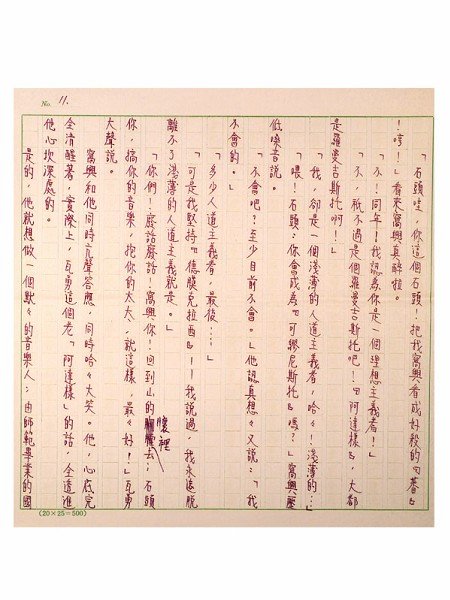 No. 11.
「石頭哇，你這個石頭！把我窩興看成好殺的『蕃』
！哼！」看來窩興真醉啦。
「不！同年！我認為你是一個理想主義者！」
「不，祇不過是個羅曼吉斯托吧！『阿達樣』，大都
是羅曼吉斯托啊！」
「我，卻是一個淺薄的人道主義者，哈々！淺薄的…」
「喂！石頭，你會成為『可慕尼斯托』嗎？」窩興壓
低嗓音說。
「不會吧？至少目前不會。」他認真想々又說：「我
不會的。」
「多少人道主義者，最後…」
「可是我堅持『德膜克拉西』！——我說過，我永遠脫
離不了淺薄的人道主義就是。」
「你們！廢話廢話！窩興你！回到山的腹裡去；石頭
你，搞你的音樂，抱你的太太，就這樣，最々好！」瓦勇
大聲說。
窩興和他同時高聲答應，同時哈々大笑。他，心底完
全清醒著，實際上，瓦勇這個老「阿達樣」的話，全邁進
他心坎深處的。
是的，他就想做一個默々的音樂人；由師範畢業的國
(20×25=500)